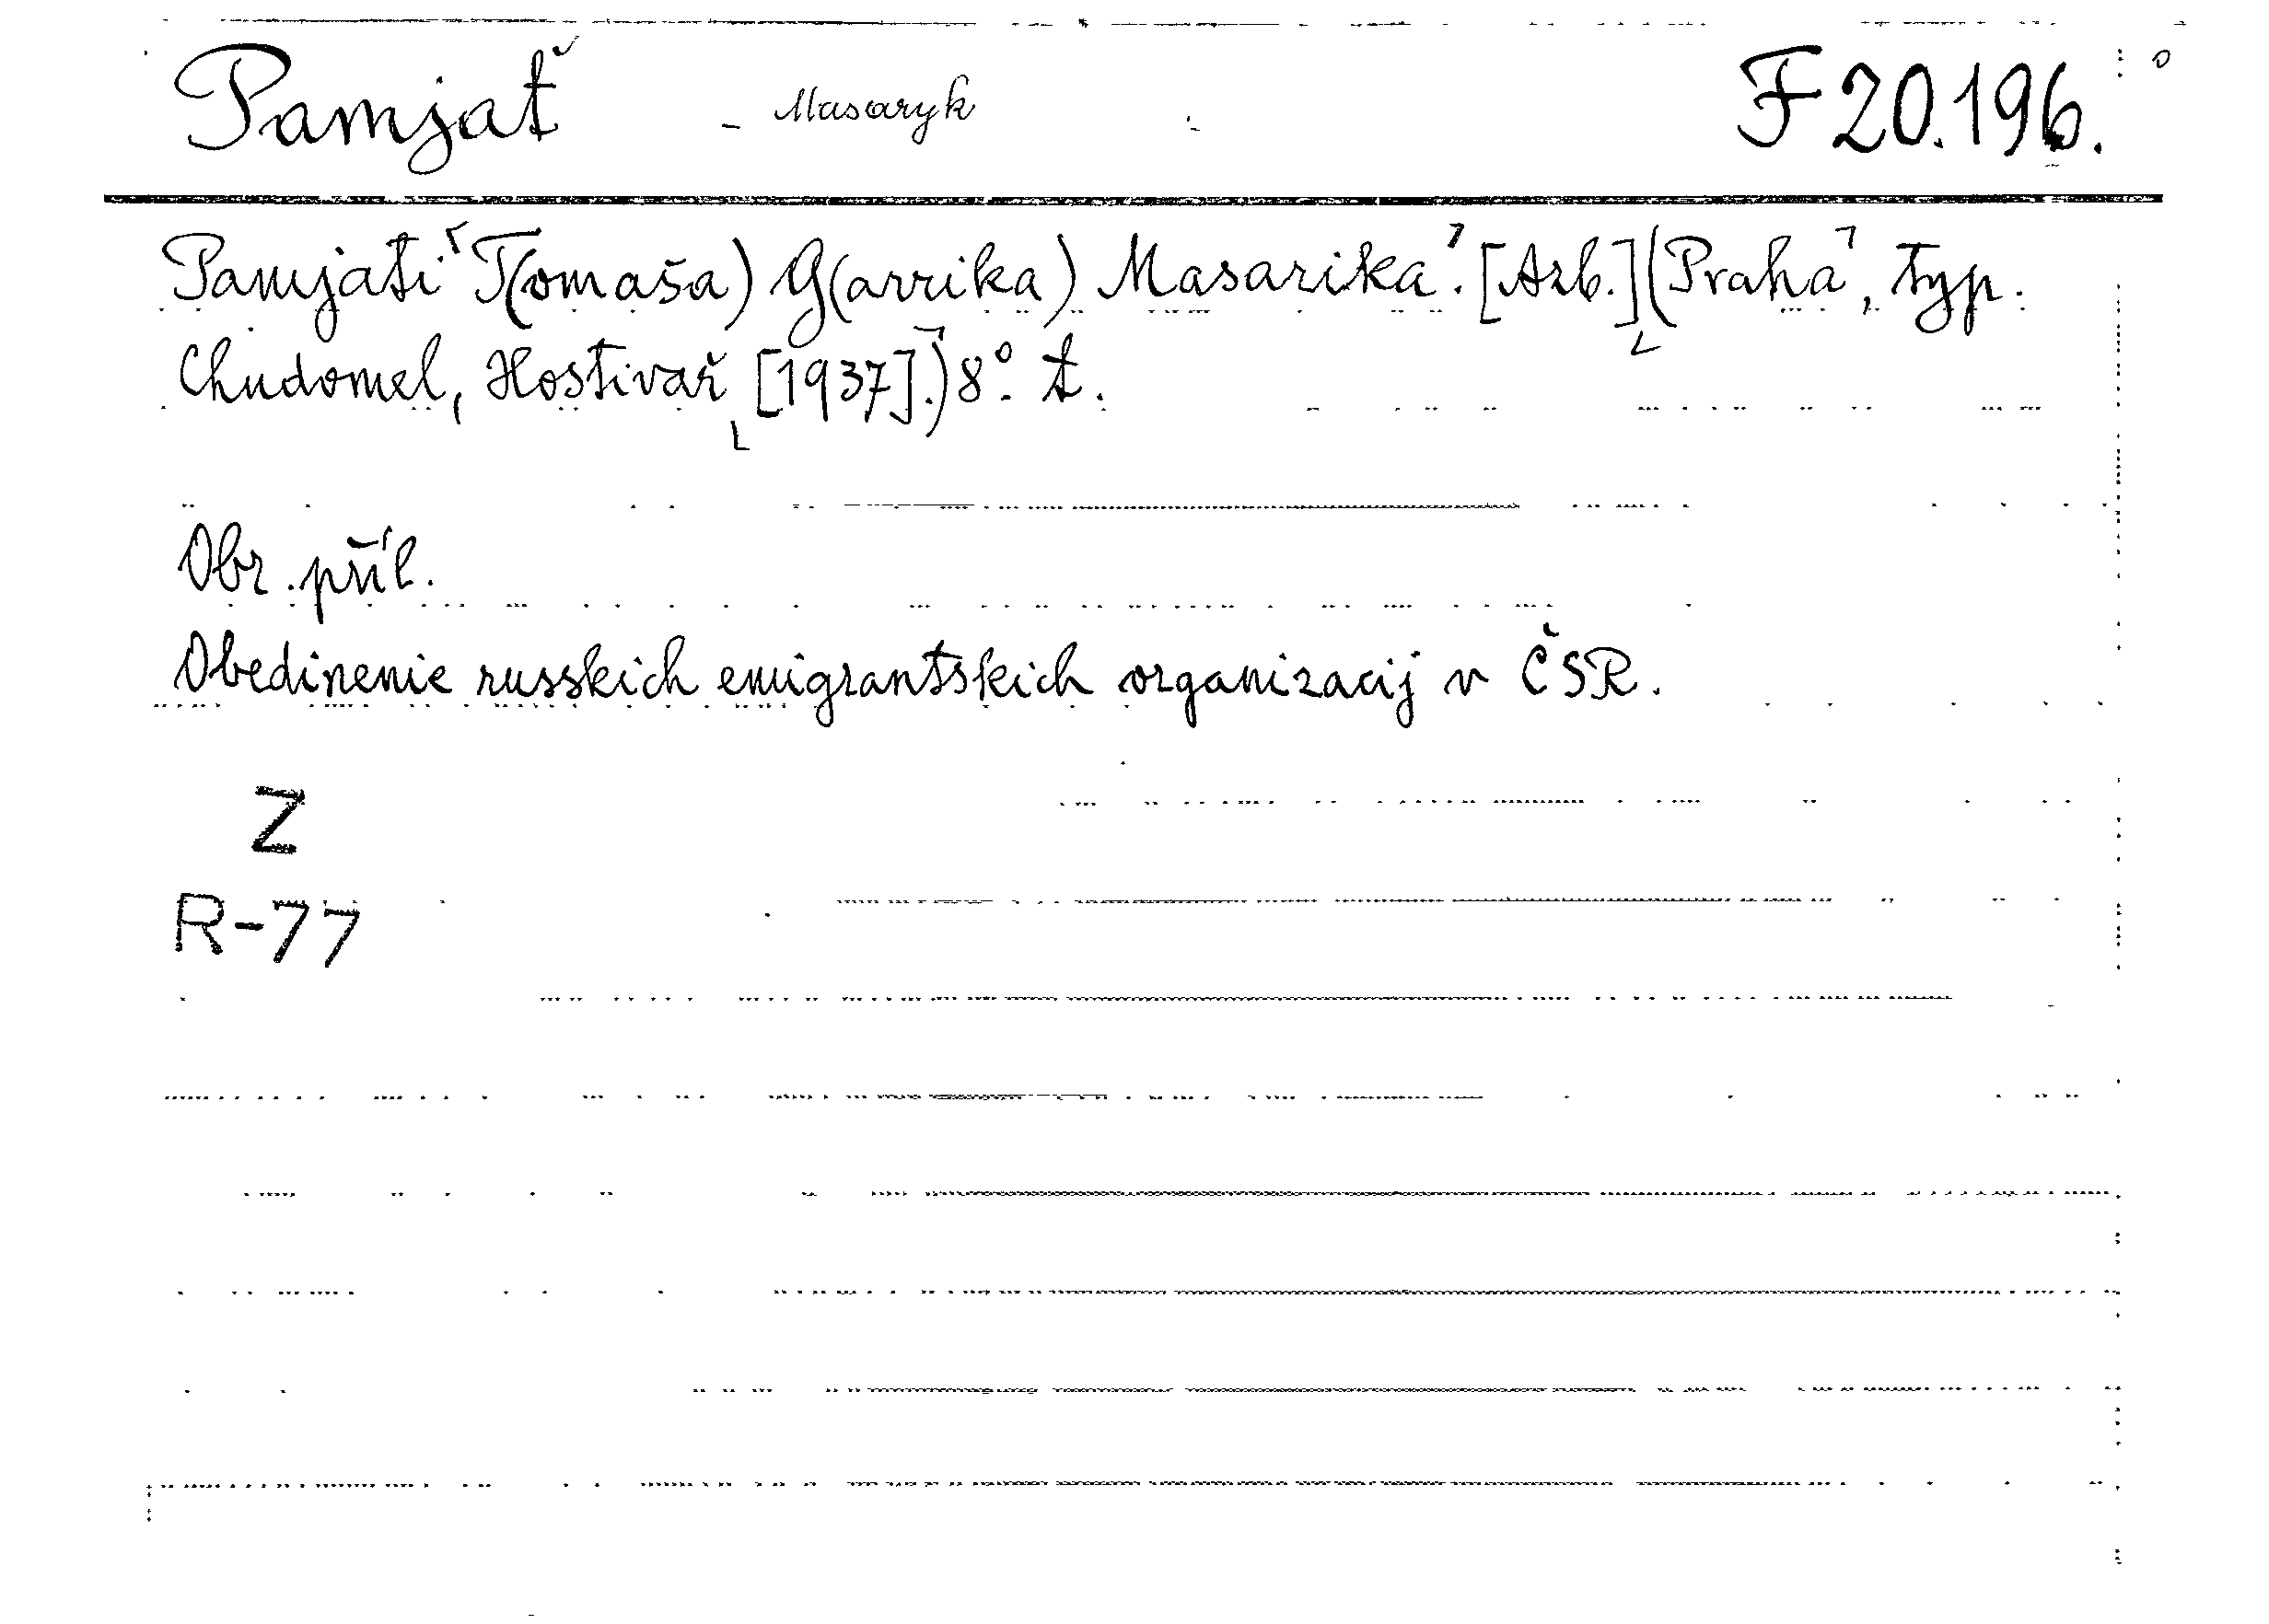 Pamjať - Masaryk - F 20.196.
Pamjati T(omaša) G(arrika) Masarika. [Azb.] (Praha, typ.
Chudomel, Hostivař [1937].) 8°. t.
Obr. příl.
Obedinenie russkich emigrantskich organizacij v ČSR.
Z
R-77